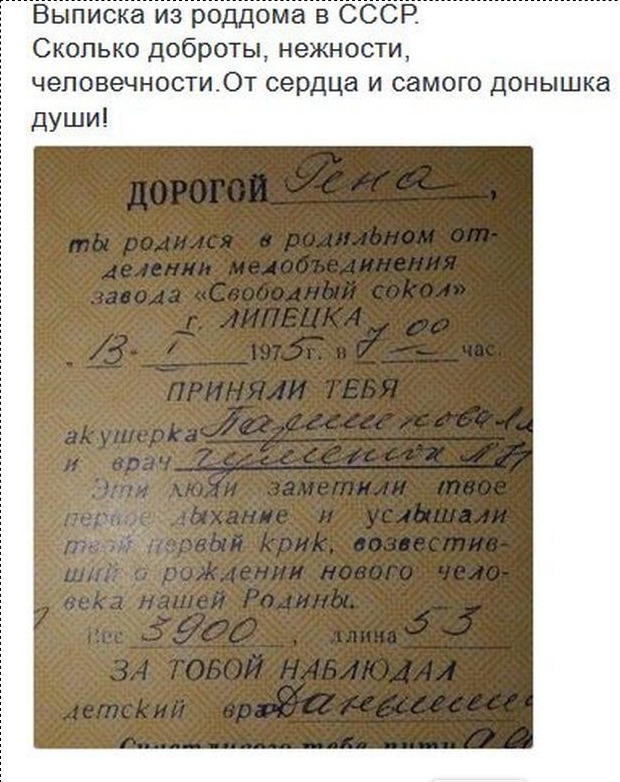 Выписка из роддома в СССР.
Сколько доброты, нежности,
человечности.От сердца и самого донышка
души!
ДОРОГОЙ Гена,
ты родился в родильном от-
делении медобъединения
завода «Свободный сокол»
г. ЛИПЕЦКА
13 I 1975г. в 7 00 час.
ПРИНЯЛИ ТЕБЯ
акушерка
и врач
Эти люди заметили твое
первое дыхание и услышали
твой первый крик, возвестив-
ший о рождении нового чело-
века нашей Родины.
Вес 3900, длина 53
ЗА ТОБОЙ НАБЛЮДАЛ
детский врач
Счастливого тебе пути